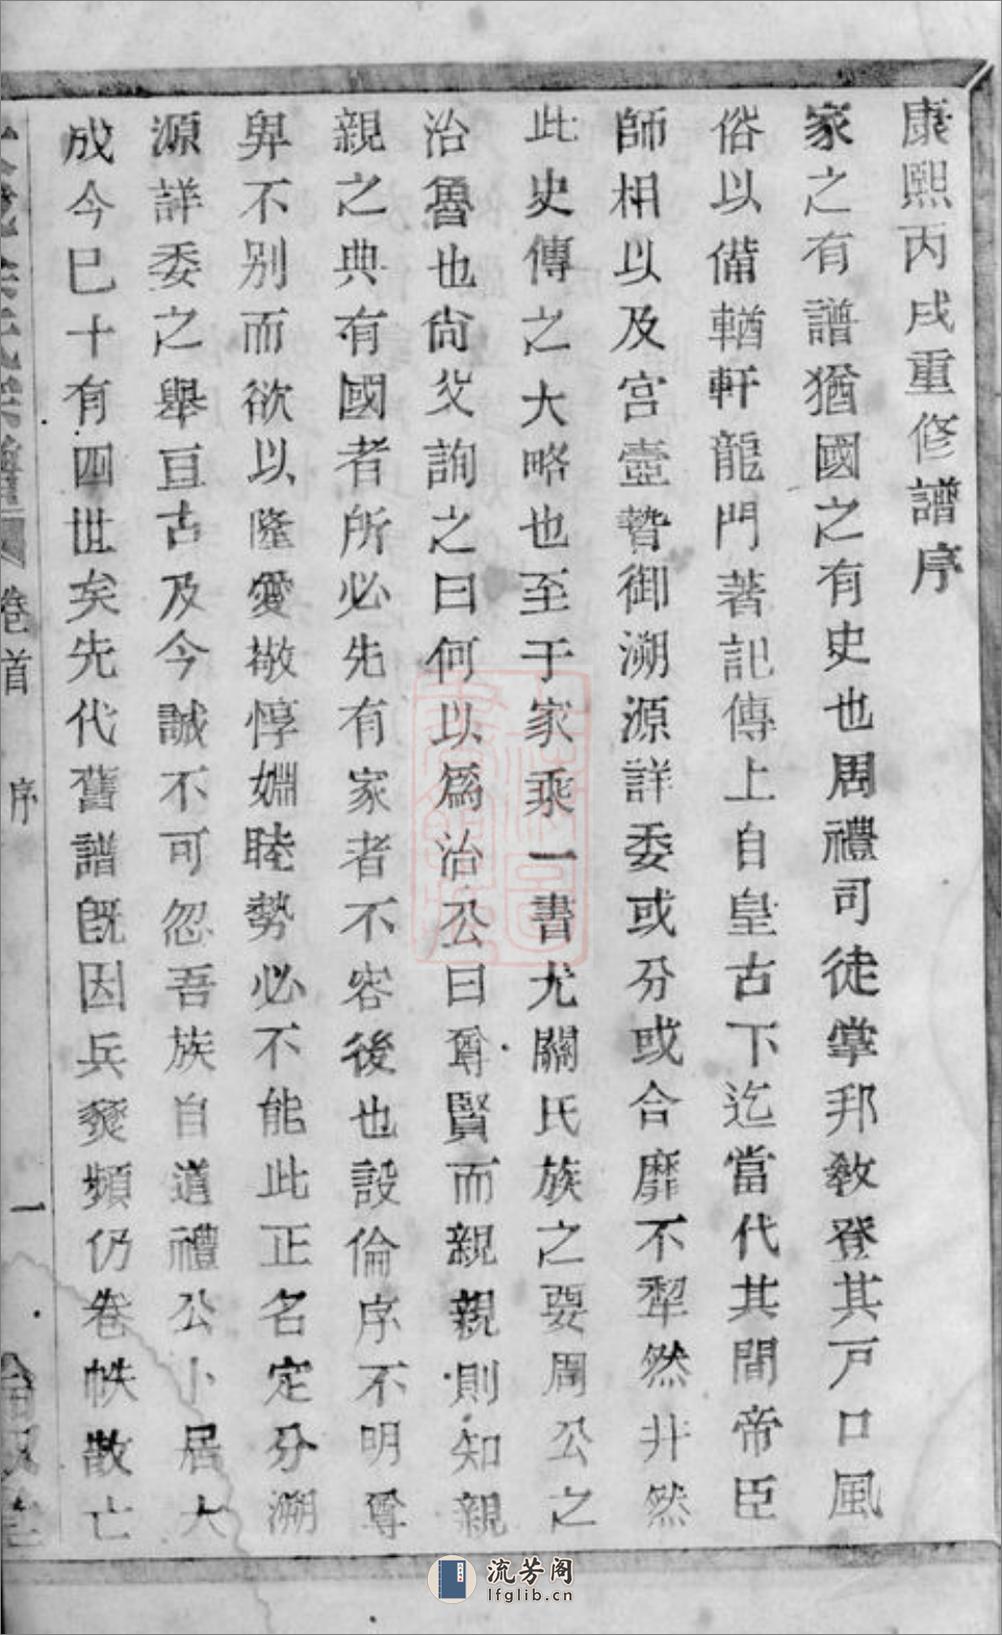 康熙丙戌重修譜序
家之有譜猶國之有史也周禮司徒掌邦教登其戸口風
俗以備輶軒龍門著記傳上自皇古下迄當代其間帝臣
師相以及宮壼贄御溯源詳委或分或合靡不犁然井然
此史傳之大略也至于家乘一書尤關氏族之要周公之
治魯也尙父詢之曰何以爲治公曰尊賢而親親則知親
親之典有國者所必先有家者不容後也設倫序不明尊
卑不別而欲以隆愛敬惇婣睦勢必不能此正名定分溯
源詳委之舉亘古及今誠不可忽吾族自道禮公卜居大
成今巳十有四世矣先代舊譜旣因兵燹頻仍卷帙散亡
卷首
序
一
流芳阁
lfglib.cn